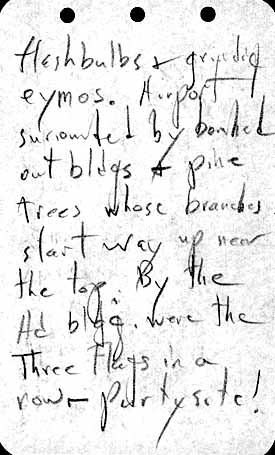 flashbulbs & grinding
eymos. Airport
surrounded by bombed
out bldgs & pine
trees whose branches
start way up near
the top. By the
Ad bldg. were the
Three flags in a
row - partysite!